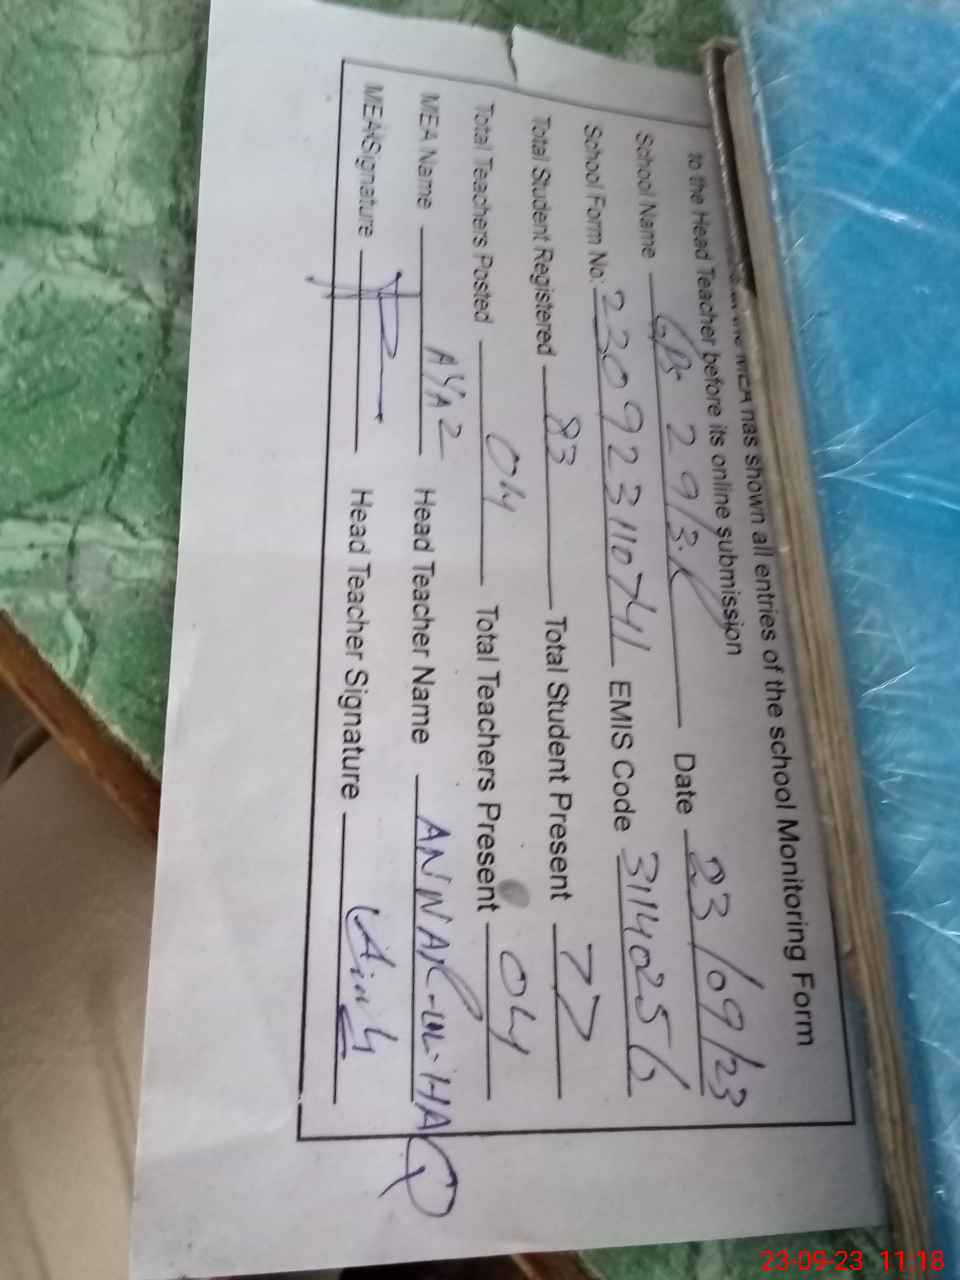 the MEA has shown all entries of the school Monitoring Form
to the Head Teacher before its online submission
School Name GPS 29/3.R Date 23/09/23
School Form No: 230923110741 EMIS Code 31140256
Total Student Registered 83 Total Student Present 77
Total Teachers Posted 04 Total Teachers Present 04
MEA Name AYAZ Head Teacher Name ANWAR-UL-HAQ
MEA Signature Head Teacher Signature
23-09-23 11:18